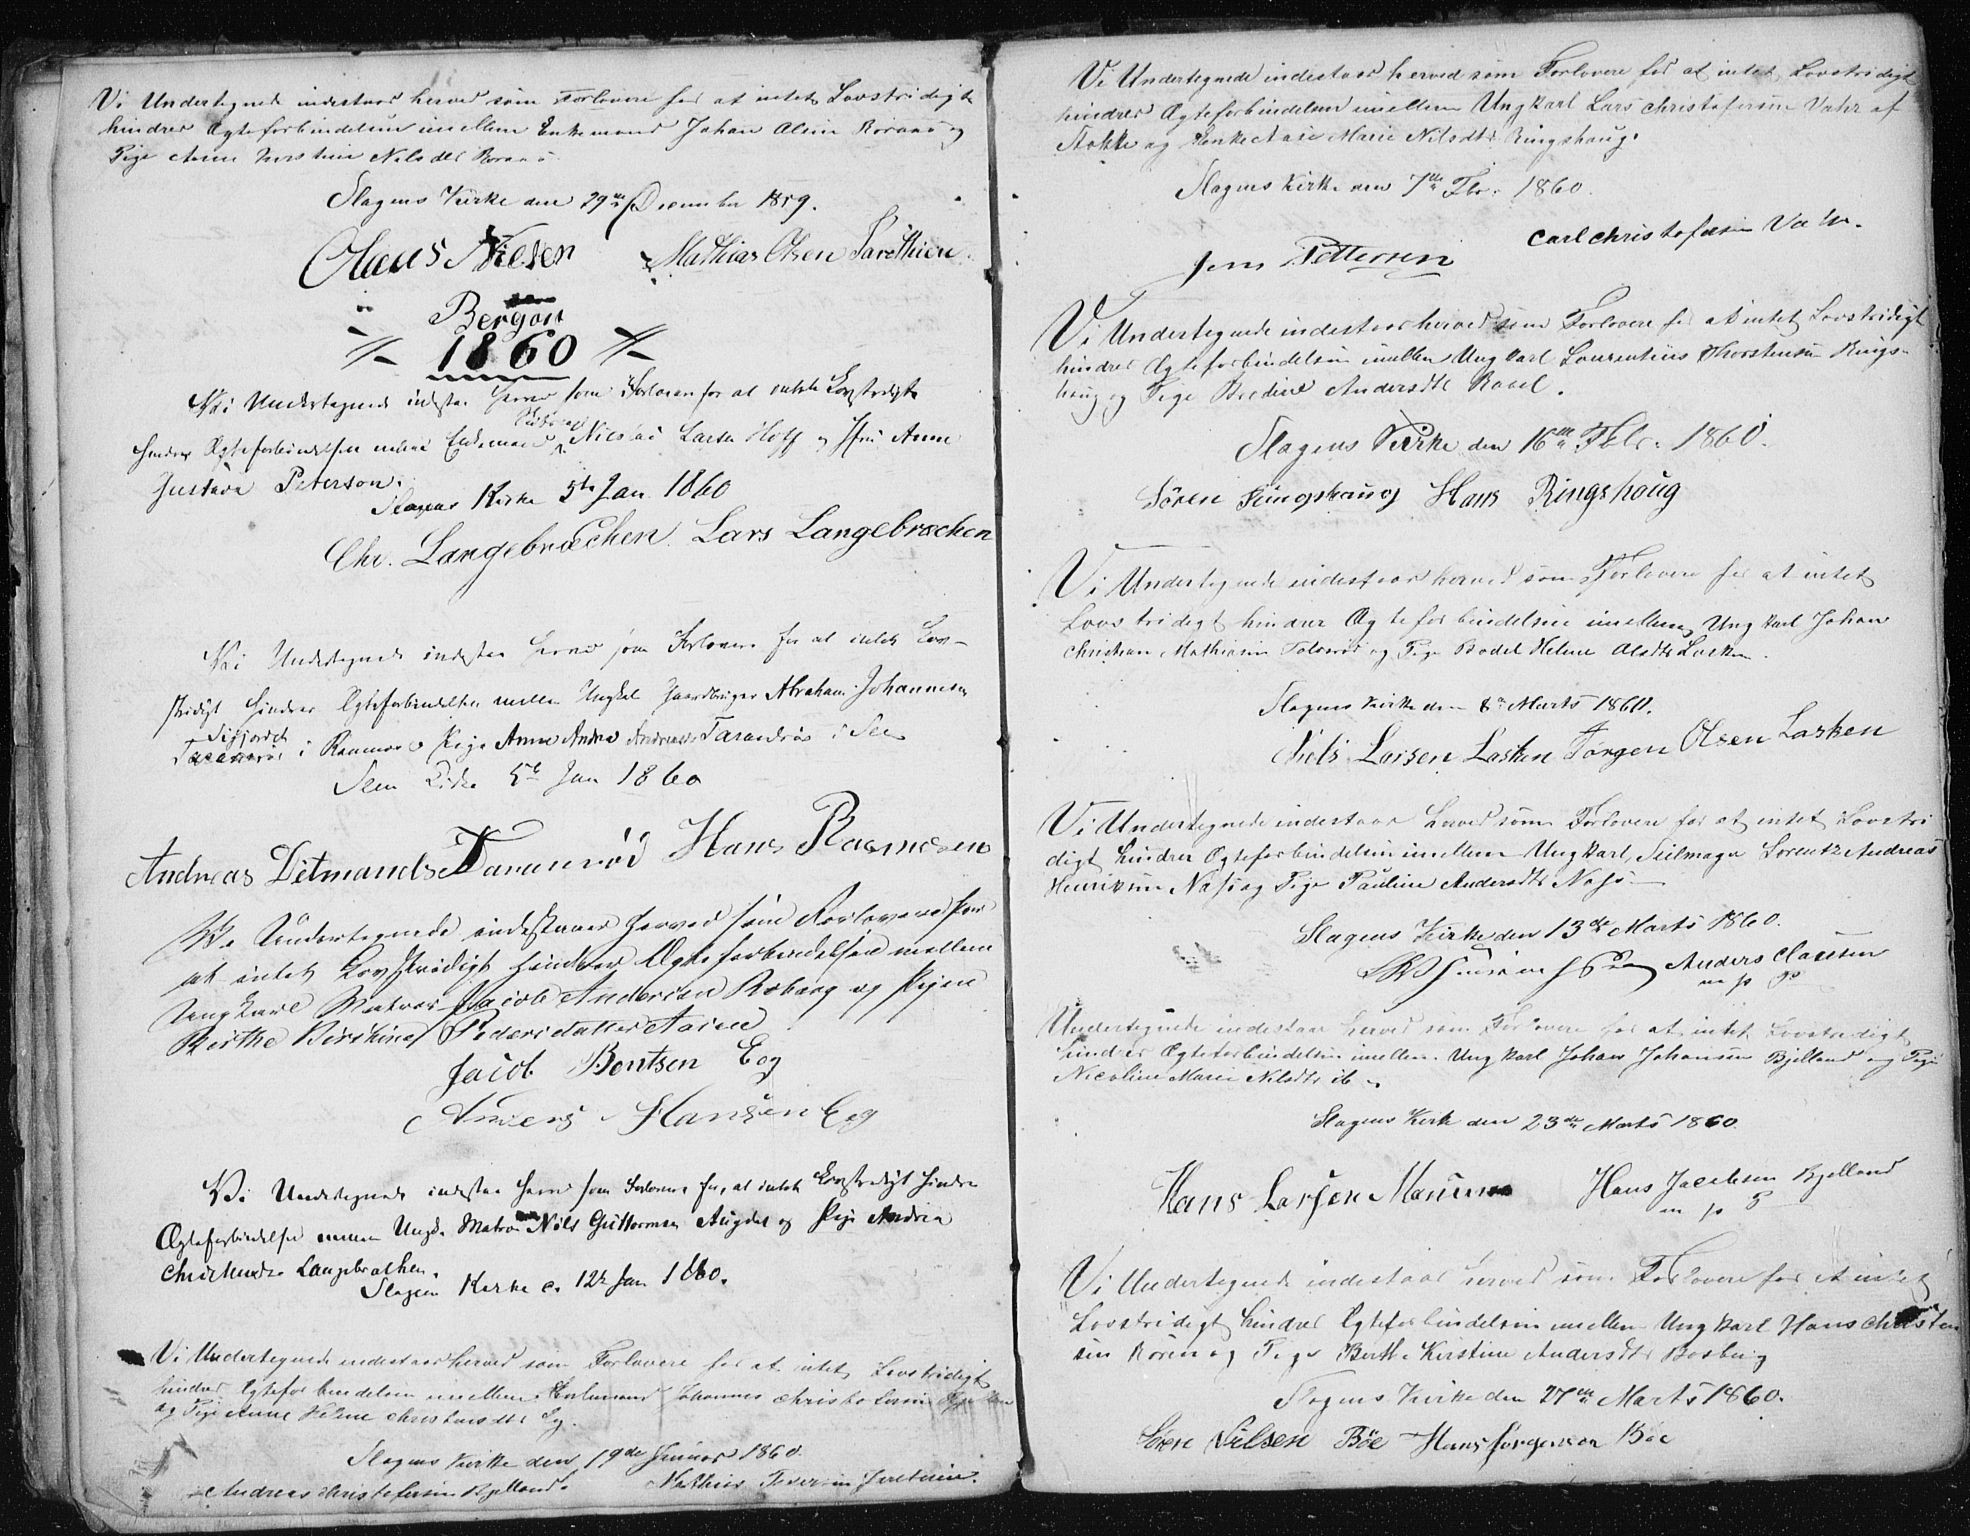 Vi Undertegnede indestaar herved som Forlovere for at intet Lovstridigt
hindrer Ægteforbindelsen imellem Enkemand Johan Olsen Roraas og
Pige Anne Kirstine Nilsdtr Roraas
Slagens Kirke den 29de December 1859.
Olaus Nielsen Mathias Olsen
Bergan
1860
Vi Undertegnede indestaa herved som Forlovere for at intet Lovstridigt
hindrer Ægteforbindelsen mellem Enkemand Nicolai Larsen Hoff og Anne
Gustava Peterson.
Slagens Kirke 5te Jan 1860
Chr. Langebræchen. Lars Langebræchen
Vi Undertegnede indestaa herved som Forlovere for at intet Lov-
stridigt hindrer Ægteforbindelsen mellem Ungkarl Gaardbruger Abraham Johannesen
i Ramnes og Pige Anne Andrea Taranrød i Sem
Sem Kirke 5te Jan 1860
Andreas Ditmands Taranrød Hans Rasmusen
Vi Undertegnede indestaaer herved som Forlovere for
at intet Lovstridigt hindrer Ægteforbindelsen mellem
Ungkarl Matros Jacob Andersen Roberg og Pigen
Berthe Kirstine Pedersdatter
Jacob Bentsen Eeg
Anders Hansen Eeg
Vi Undertegnede indestaa herved som Forlovere for, at intet Lovstridigt hindrer
Ægteforbindelsen mellem Ungk. Matros Nils Guttormsen og Pige Andrea
Langebrækken.
Slagens Kirke d. 12te Jan 1860.
Vi Undertegnede indestaar herved som Forlovere for at intet Lovstridigt
hindrer Ægteforbindelsen imellem Enkemand Johannes Christofersen
og Pige Anne Helene
Slagens Kirke den 19de Januar 1860.
Andreas Christofersen Kjelland. Mathias
Vi Undertegnede indestaar herved som Forlovere for at intet Lovstridigt
hindrer Ægteforbindelsen imellem Ungkarl Lars Christofersen af
Stokke og Enke Marie Nilsdtr Ringshaug.
Slagens Kirke den 7de Fbr. 1860.
Jens Pettersen Carl Christofersen
Vi Undertegnede indestaar herved som Forlovere for at intet Lovstridigt
hindrer Ægteforbindelsen imellem Ungkarl Laurentius Thorstensen Rings-
haug og Pige Andersdtr
Slagens Kirke den 16de Febr. 1860.
Søren Ringshaug Hans Ringshaug
Vi Undertegnede indestaar herved som Forlovere for at intet
Lovstridigt hindrer Ægteforbindelsen imellem Ungkarl Johan
Christian Mathisen Tolsrød og Pige Bodel Helene Olsdtr Lasken
Slagens Kirke den 8de Marts 1860.
Niels Larsen Lasken Jørgen Olsen Lasken
Vi Undertegnede indestaar herved som Forlovere for at intet Lovstri
digt hindrer Ægteforbindelsen imellem Ungkarl, Seilmager Lorentz Andreas
Henriksen Næs og Pige Pauline Andersdtr Næs
Slagens Kirke den 13de Marts 1860.
Anders Clausen
Undertegnede indestaar herved som Forlovere for at intet Lovstridigt
hindrer Ægteforbindelsen imellem Ungkarl Johan Johansen Bjelland og Pige
Nicoline Marie Nilsdtr ib
Slagens Kirke den 23de Marts 1860.
Hans Larsen Hans Jacobsen Bjelland
Vi Undertegnede indestaar herved som Forlovere for at intet
Lovstridigt hindrer Ægteforbindelsen imellem Ungkarl Hans Christen
sen Roren og Pige Berthe Kirstine Andersdtr Basberg
Slagens Kirke den 27de Marts 1860.
Søren Nilsen Bøe Hans Jørgensen Bøe